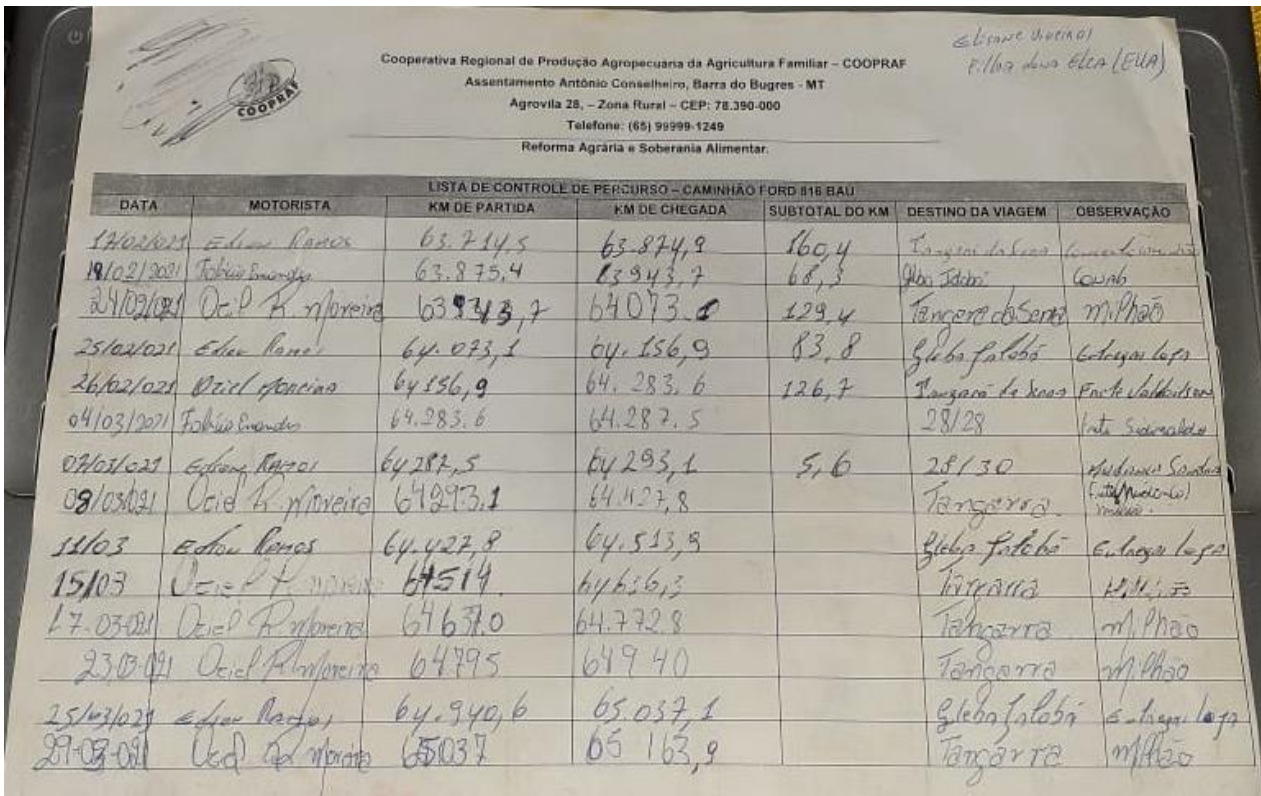 Elisane
Filha dona Elza (ELLA)
COOPRAF
Cooperativa Regional de Produção Agropecuaria da Agricultura Familiar – COOPRAF
Assentamento Antônio Conselheiro, Barra do Bugres - MT
Agrovila 28, – Zona Rural – CEP: 78.390-000
Telefone: (65) 99999-1249
Reforma Agrária e Soberania Alimentar.
LISTA DE CONTROLE DE PERCURSO – CAMINHÃO FORD 816 BAÚ
DATA MOTORISTA KM DE PARTIDA KM DE CHEGADA SUBTOTAL DO KM DESTINO DA VIAGEM OBSERVAÇÃO
17/02/2021 Edson Ramos 63.714,5 63.874,9 160,4 Tangará da Serra
19/02/2021 Fabricio 63.875,4 63943,7 68,3 Conab
24/02/021 Oziel R. Moreira 63943,7 64073.1 129,4 Tangara da Serra Milhão
25/02/021 Edson Ramos 64.073,1 64.156,9 83,8 Gleba Entregar
26/02/021 Oziel Moreira 64156,9 64.283,6 126,7 Tangará da Serra
04/03/2021 Fabricio 64.283.6 64.287.5 28/28
07/03/021 Edson Ramos 64287,5 64293,1 5,6 28/30
08/03/021 Oziel R. Moreira 64293.1 64.427,8 Tangarra
11/03 Edson Ramos 64.427,8 64.513,9 Gleba Entregar
15/03 Oziel R. Moreira 64514 64636,3 Tangarra
17-03-021 Oziel R. Moreira 64637.0 64.772.8 Tangarra Milhão
23-03-021 Oziel R. Moreira 64795 64940 Tangarra Milhão
25/03/021 Edson Ramos 64.940,6 65.037,1 Gleba Entregar
29-03-021 Oziel R Moreira 65037 65163,9 Tangarra Milhão